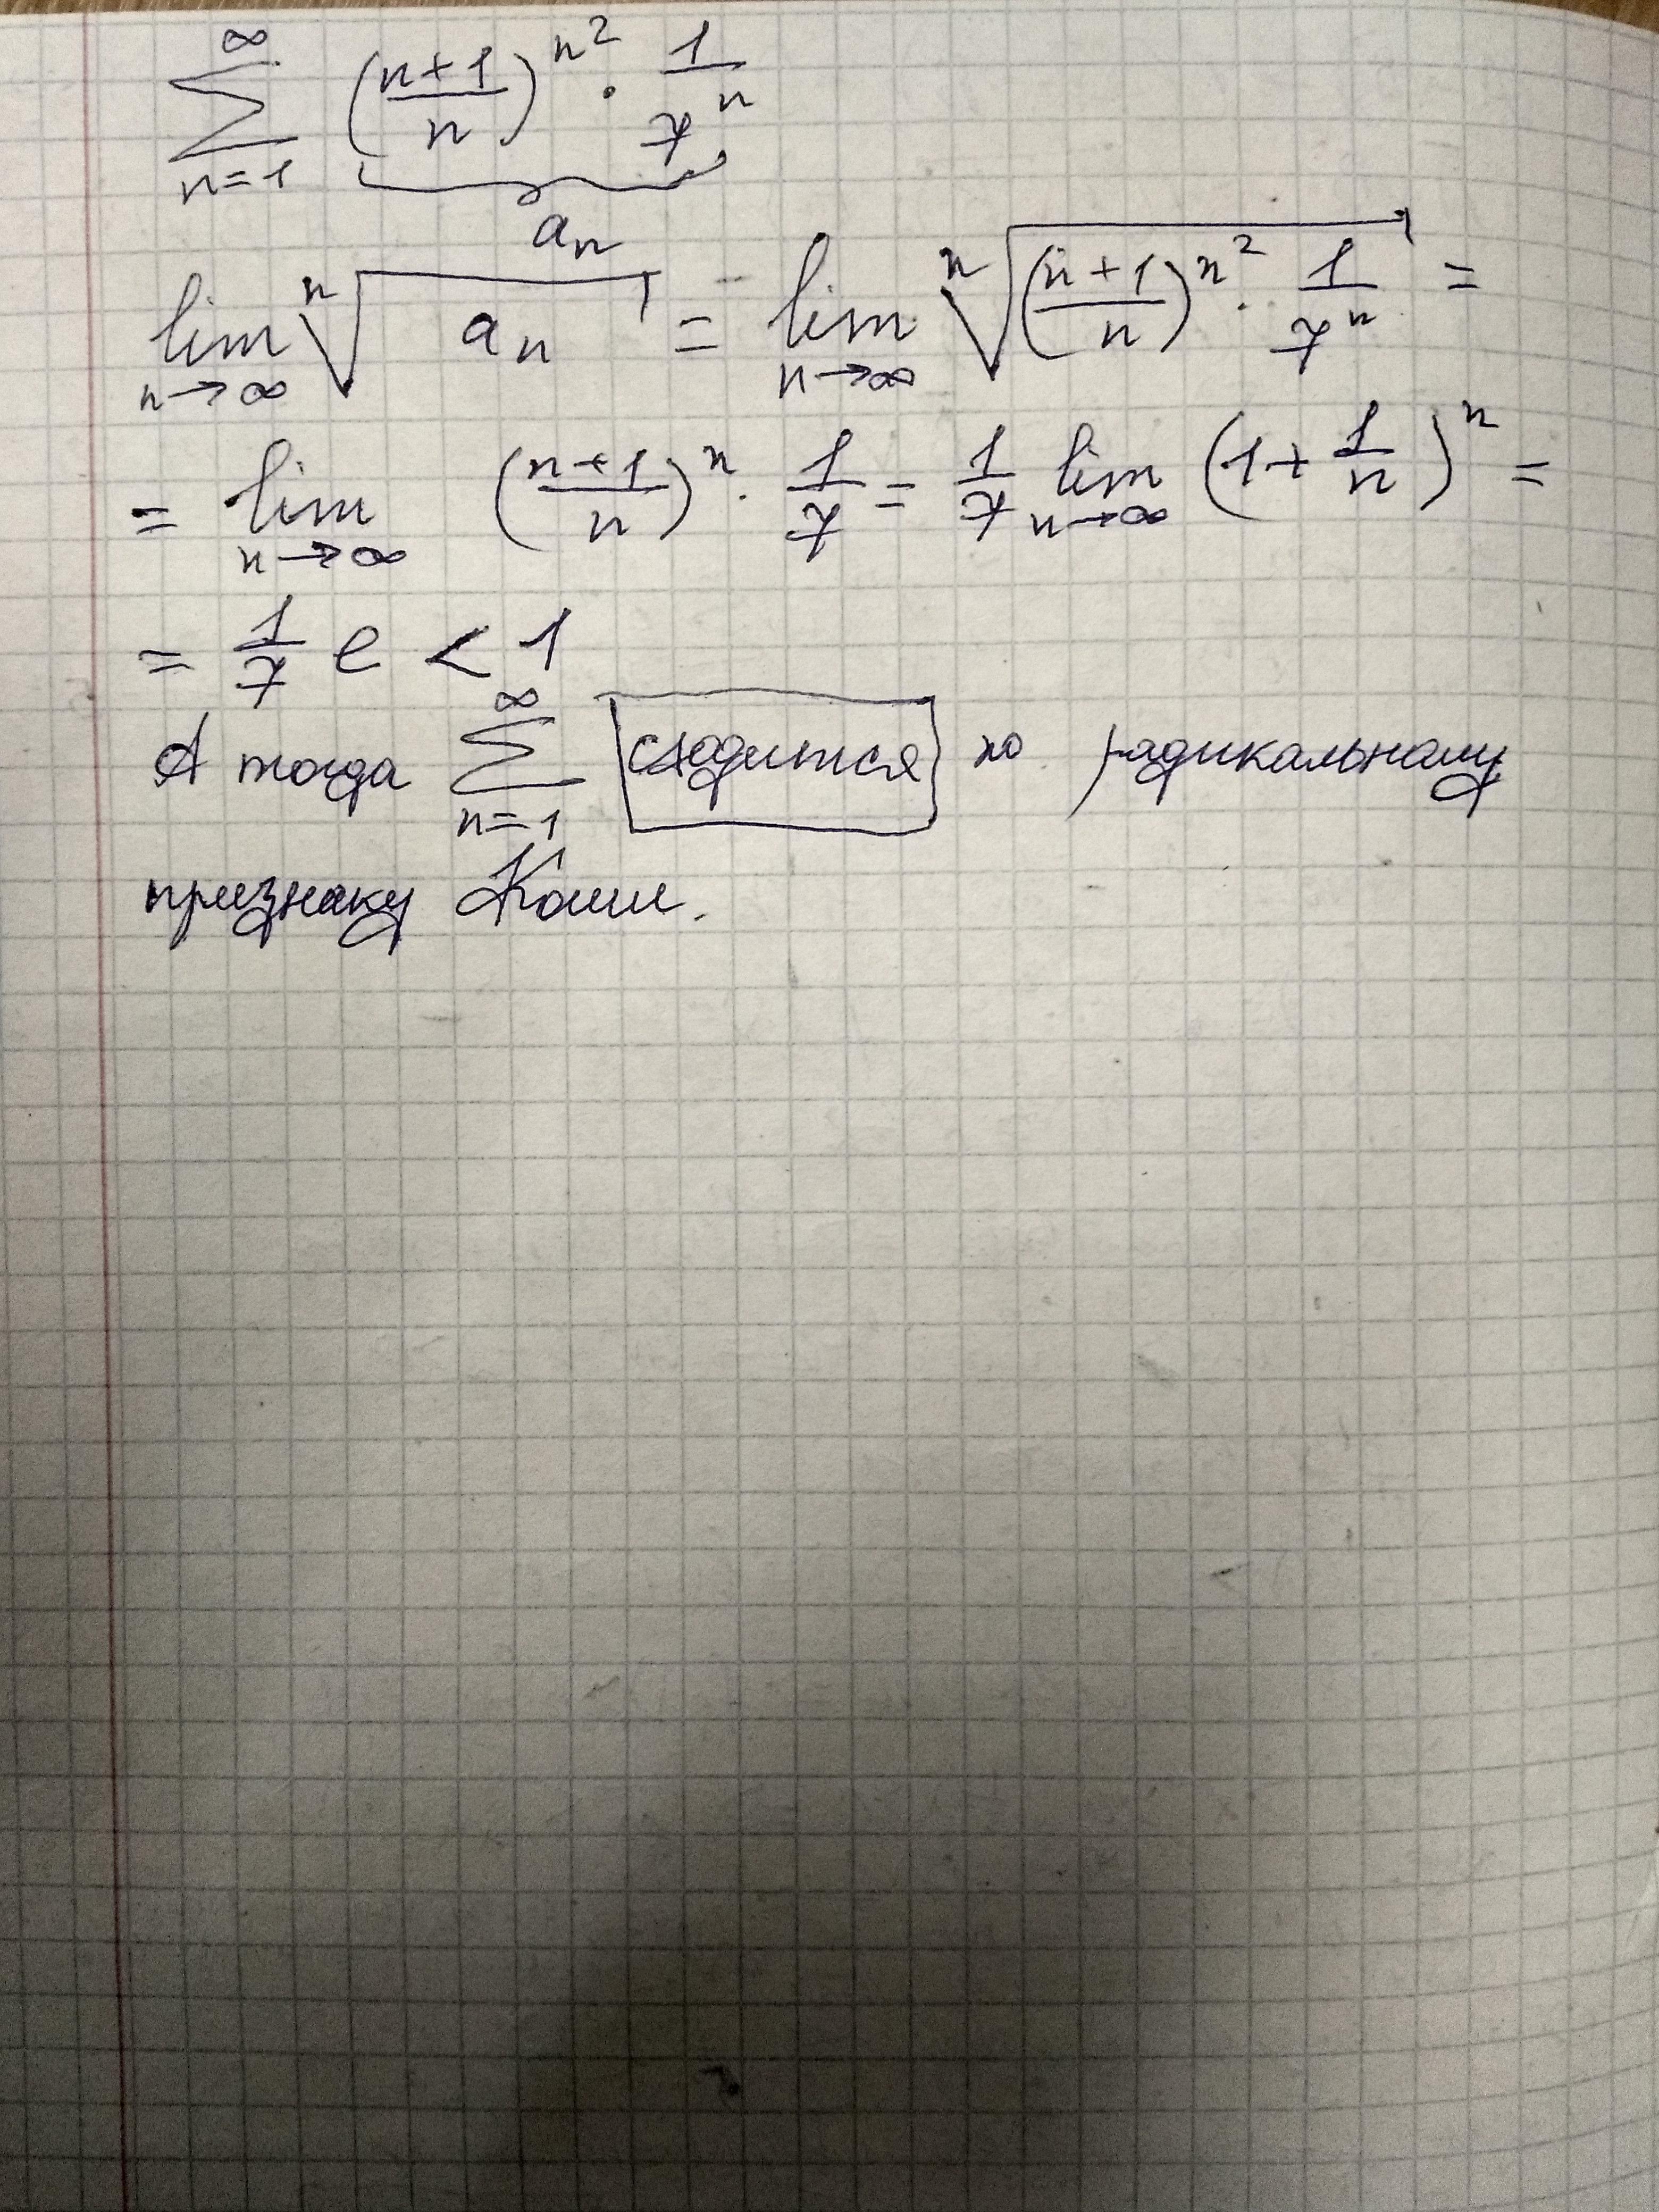 ∞∑n=1 ((n+1)/n)^n² · 1/7ⁿ
aₙ
lim n→∞ ⁿ√aₙ = lim n→∞ ⁿ√(((n+1)/n)^n² · 1/7ⁿ) =
= lim n→∞ ((n+1)/n)ⁿ · 1/7 = 1/7 lim n→∞ (1+1/n)ⁿ =
= 1/7 e < 1
А тогда ∞∑n=1 сходится по радикальному
признаку Коши.